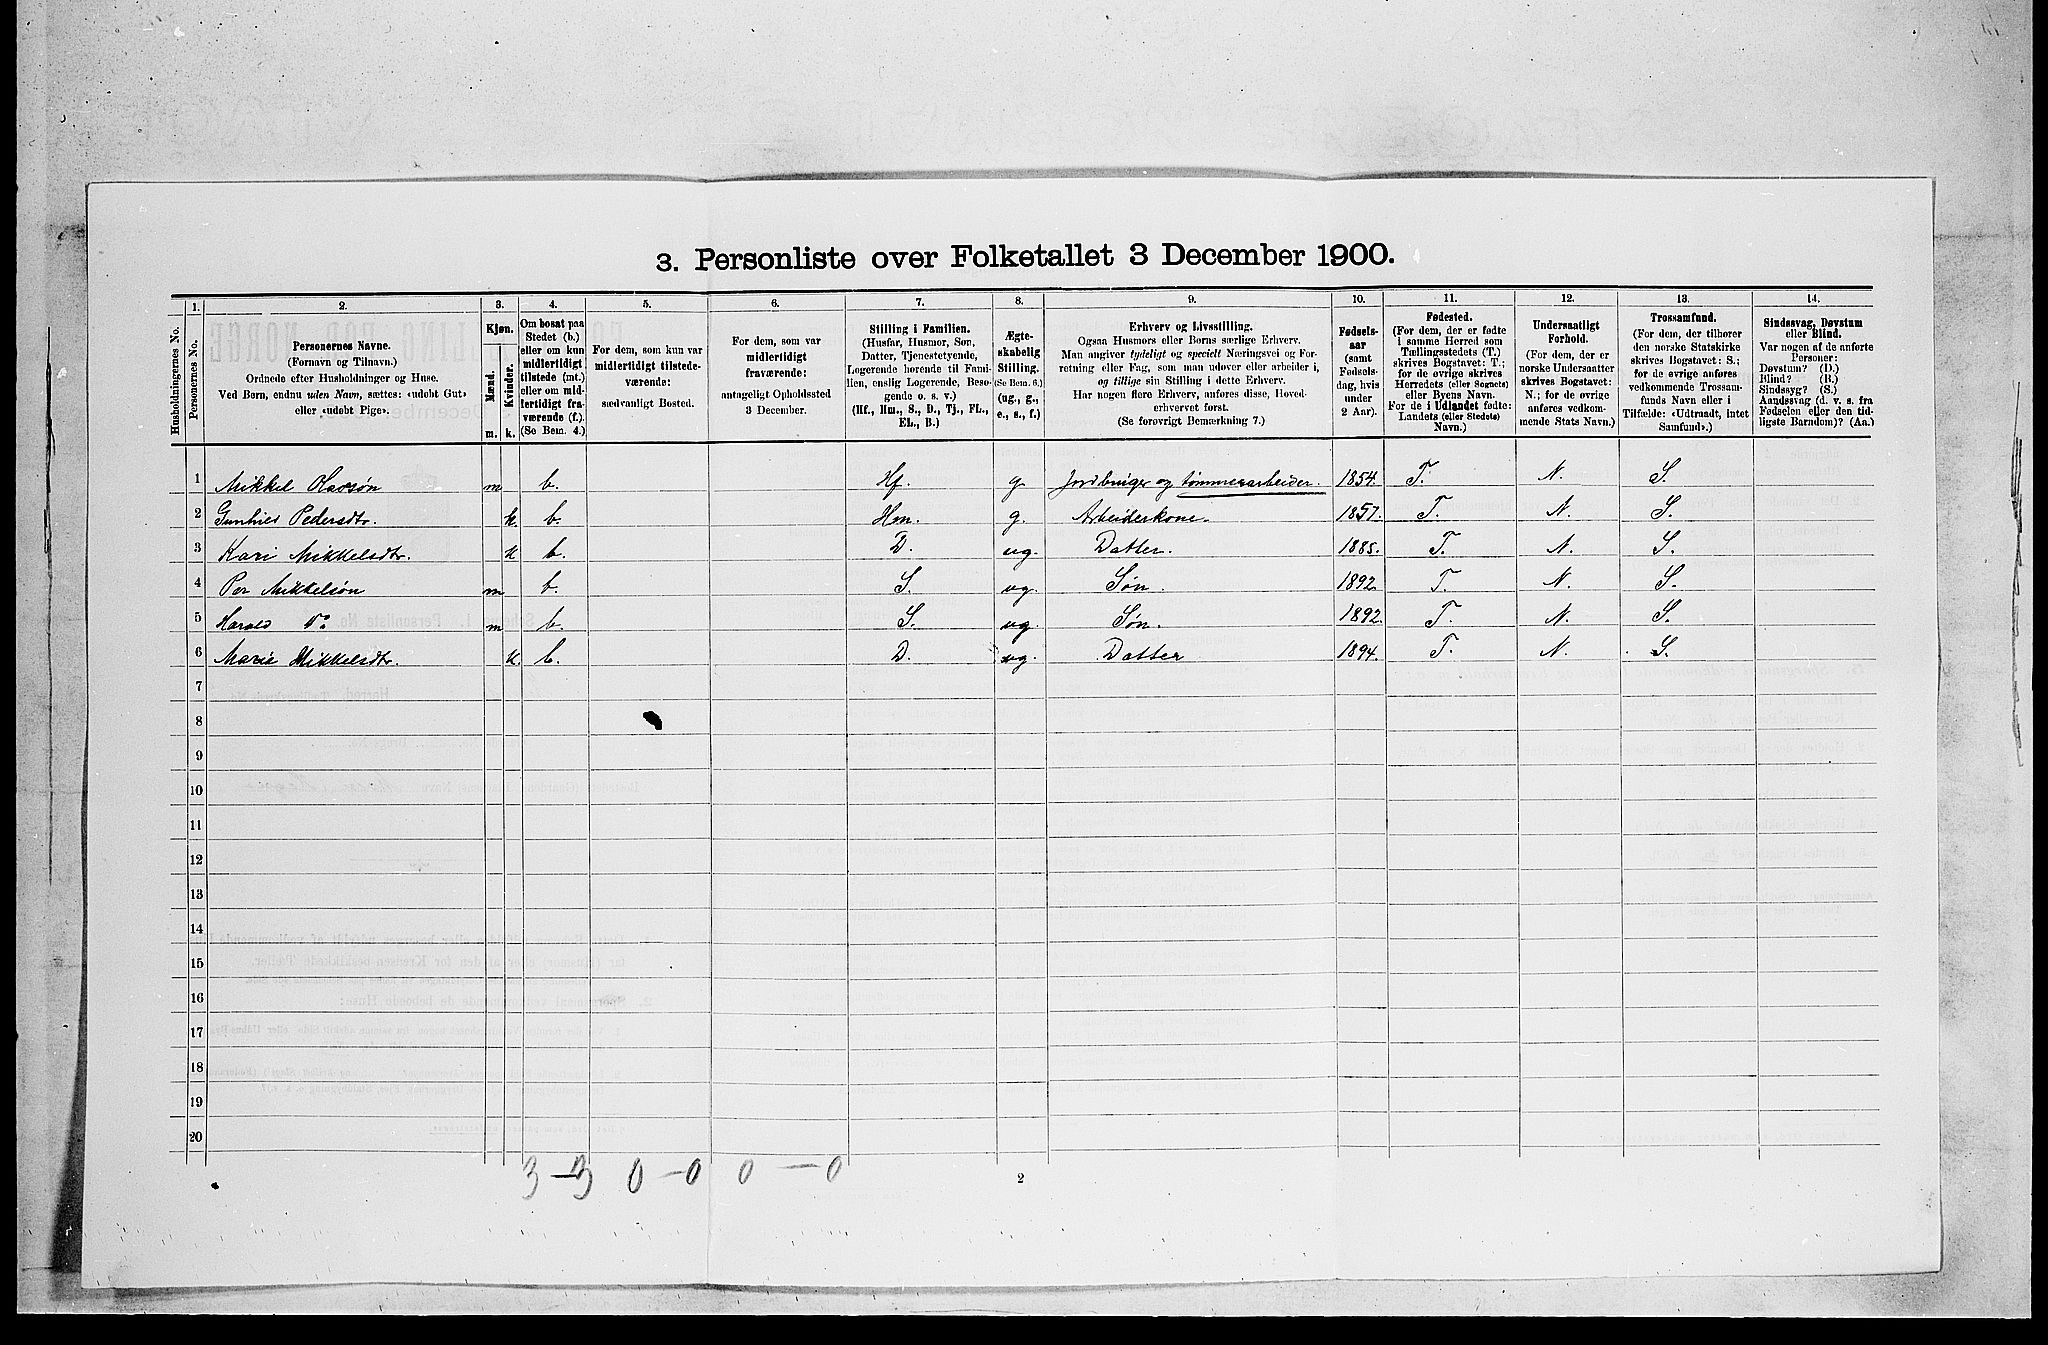 3. Personliste over Folketallet 3 December 1900.
1. 2. 3. 4. 5. 6. 7. 8. 9. 10. 11. 12. 13. 14.
Husholdningernes No.
Personernes No.
Personernes Navne.
(Fornavn og Tilnavn.)
Ordnede efter Husholdninger og Huse.
Ved Børn, endnu uden Navn, sættes: «udøbt Gut»
eller «udøbt Pige».
Kjøn.
Mænd.
Kvinder.
m. k.
Om bosat paa
Stedet (b.)
eller om kun
midlertidigt
tilstede (mt.)
eller om mid-
lertidigt fra-
værende (f.).
(Se Bem. 4.)
For dem, som kun var
midlertidigt tilstede-
værende:
sædvanligt Bosted.
For dem, som var
midlertidigt
fraværende:
antageligt Opholdssted
3 December.
Stilling i Familien.
(Husfar, Husmor, Søn,
Datter, Tjenestetyende,
Logerende hørende til Fami-
lien, enslig Logerende, Besø-
gende o. s. v.)
(Hf., Hm., S., D., Tj., FL.,
EL., B.)
Ægte-
skabelig
Stilling.
(Se Bem. 6.)
(ug., g.,
e., s., f.)
Erhverv og Livsstilling.
Ogsaa Husmors eller Børns særlige Erhverv.
Man angiver tydeligt og specielt Næringsvei og For-
retning eller Fag, som man udøver eller arbeider i,
og tillige sin Stilling i dette Erhverv.
Har nogen flere Erhverv, anføres disse, Hoved-
erhvervet først.
(Se forøvrigt Bemærkning 7.)
Fødsels-
aar
(samt
Fødsels-
dag, hvis
under
2 Aar).
Fødested.
(For dem, der er fødte
i samme Herred som
Tællingsstedets (T.)
skrives Bogstavet: T.;
for de øvrige skrives
Herredets (eller Sognets)
eller Byens Navn.
For de i Udlandet fødte:
Landets (eller Stedets)
Navn.)
Undersaatligt
Forhold.
(For dem, der er
norske Undersaatter
skrives Bogstavet:
N.; for de øvrige
anføres vedkom-
mende Stats Navn.)
Trossamfund.
(For dem, der tilhører
den norske Statskirke
skrives Bogstavet: S.;
for de øvrige anføres
vedkommende Trossam-
funds Navn eller i
Tilfælde: «Udtraadt, intet
Samfund».)
Sindssvag, Døvstum
eller Blind.
Var nogen af de anførte
Personer:
Døvstum? (D.)
Blind? (B.)
Sindssyg? (S.)
Aandssvag (d. v. s. fra
Fødselen eller den tid-
ligste Barndom)? (Aa.)
1 Mikkel Olavsøn m b. Hf. g. Jordbruger og tømmerarbeider. 1854. T. N. S.
2 Gunhild Pedersdtr. k. b. Hm. g. Arbeiderkone. 1857. T. N. S.
3 Kari Mikkelsdtr. k b. D. ug. Datter. 1885. T. N. S.
4 Per Mikkelsøn m b. S. ug. Søn. 1892 T. N. S.
5 Harald Do m b. S. ug. Søn. 1892. T. N. S.
6 Marie Mikkelsdtr. k. b. D. ug. Datter 1894. T. N. S.
7
8
9
10
11
12
13
14
15
16
17
18
19
20
3 - 3 0 - 0 0 - 0
2